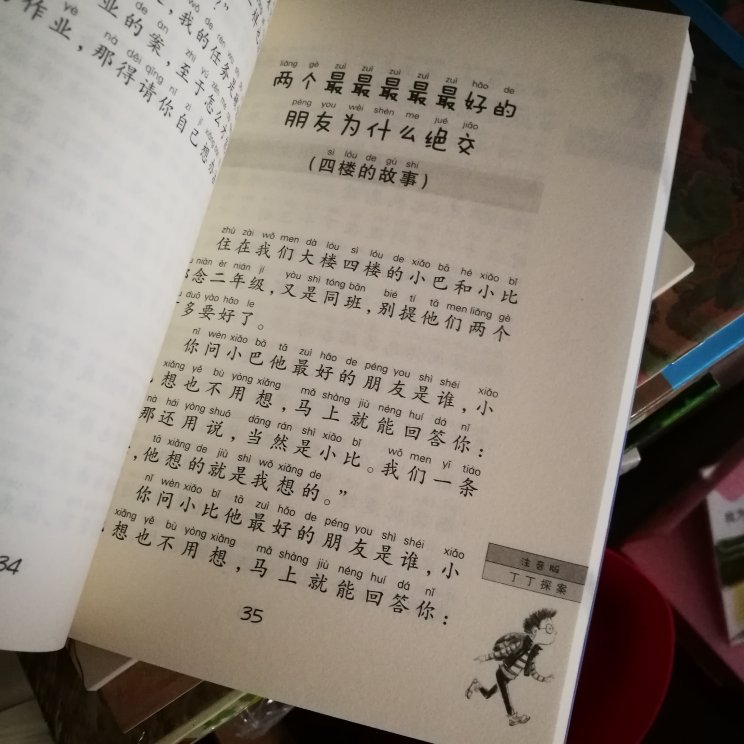 ，我的任务是
业的案，至于怎么
作业，那得请你自己想办
34
liǎng gè zuì zuì zuì zuì zuì hǎo de
两个最最最最最好的
péng you wèi shén me jué jiāo
朋友为什么绝交
sì lóu de gù shi
（四楼的故事）
zhù zài wǒ men dà lóu sì lóu de xiǎo bā hé xiǎo bǐ
住在我们大楼四楼的小巴和小比
niàn èr nián jí yòu shì tóng bān bié tí tā men liǎng gè
念二年级，又是同班，别提他们两个
duō yào hǎo le
多要好了。
nǐ wèn xiǎo bā tā zuì hǎo de péng you shì shéi xiǎo
你问小巴他最好的朋友是谁，小
xiǎng yě bù yòng xiǎng mǎ shàng jiù néng huí dá nǐ
想也不用想，马上就能回答你：
nà hái yòng shuō dāng rán shì xiǎo bǐ wǒ men yī tiáo
那还用说，当然是小比。我们一条
tā xiǎng de jiù shì wǒ xiǎng de
，他想的就是我想的。”
nǐ wèn xiǎo bǐ tā zuì hǎo de péng you shì shéi xiǎo
你问小比他最好的朋友是谁，小
xiǎng yě bù yòng xiǎng mǎ shàng jiù néng huí dá nǐ
想也不用想，马上就能回答你：
35
注音版
丁丁探案